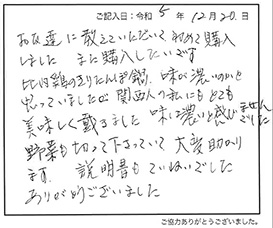 ご記入日：令和 5 年 12 月 20 日
お友達に教えていただいて初めて購入
しました また購入したいです
比内鶏のきりたんぽ鍋、味が濃いのかと
思っていましたが関西人の私にもとても
美味しく戴きました 味は濃いと感じませんでした
野菜も切って下さっていて大変助かり
ます 説明書もていねいでした
ありがとうございました
ご協力ありがとうございました。